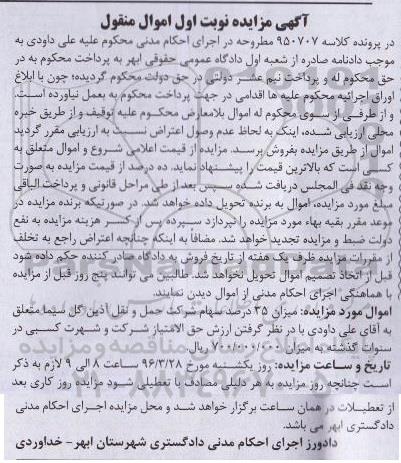 آگهی مزایده نوبت اول اموال منقول
در پرونده کلاسه ۹۵۰۷۰۷ مطروحه در اجرای احکام مدنی محکوم علیه علی داودی به
موجب دادنامه صادره از شعبه اول دادگاه عمومی حقوقی ابهر به پرداخت محکوم به در
حق محکوم له و پرداخت نیم عشر دولتی در حق دولت محکوم گردیده؛ چون با ابلاغ
اوراق اجرائیه محکوم علیه ها اقدامی در جهت پرداخت محکوم به بعمل نیاورده است.
و از طرفی از سوی محکوم له اموال بلامعارض محکوم علیه توقیف و از طریق خبره
محلی ارزیابی شده، اینک به لحاظ عدم وصول اعتراض نسبت به ارزیابی مقرر گردید
اموال از طریق مزایده بفروش برسد. مزایده از قیمت اعلامی شروع و اموال متعلق به
کسی است که بالاترین قیمت را پیشنهاد نماید. ده درصد از قیمت مزایده به صورت
وجه نقد فی المجلس دریافت شده سپس بعد از طی مراحل قانونی و پرداخت الباقی
مبلغ مورد مزایده، اموال به برنده تحویل داده خواهد شد. در صورتیکه برنده مزایده در
موعد مقرر بقیه بهاء مورد مزایده را نپردازد سپرده پس از کسر هزینه مزایده به نفع
دولت ضبط و مزایده تجدید خواهد شد. مضافاً به اینکه چنانچه اعتراض راجع به تخلف
از مقررات مزایده ظرف یک هفته از تاریخ فروش به دادگاه صادر کننده حکم داده شود
قبل از اتخاذ تصمیم اموال تحویل نخواهد شد. طالبین می توانند پنج روز قبل از مزایده
با هماهنگی اجرای احکام مدنی از اموال دیدن نمایند.
اموال مورد مزایده: میزان ۳۵ درصد سهام شرکت حمل و نقل آذین گل سیما متعلق
به آقای علی داودی با در نظر گرفتن ارزش حق الامتیاز شرکت و شهرت کسبی در
سنوات گذشته به میزان ۷۰۰/۰۰۰/۰۰۰ ریال
تاریخ و ساعت مزایده: روز یکشنبه مورخ ۹۶/۳/۲۸ ساعت ۸ الی ۹ لازم به ذکر
است چنانچه روز مزایده به هر دلیلی مصادف با تعطیلی شود مزایده روز کاری بعد
از تعطیلات در همان ساعت برگزار خواهد شد و محل مزایده اجرای احکام مدنی
دادگستری ابهر می باشد.
دادورز اجرای احکام مدنی دادگستری شهرستان ابهر - خداوردی